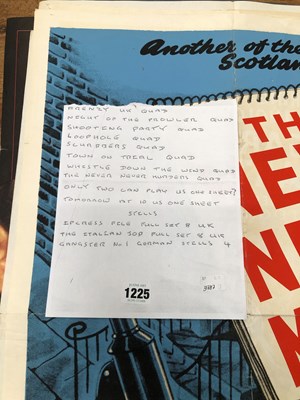 Another of the
Scotlan
FRENZY UK QUAD
NIGHT OF THE PROWLER QUAD
SHOOTING PARTY QUAD
LOOPHOLE QUAD
SLUMBERS QUAD
TOWN ON TRIAL QUAD
WHISTLE DOWN THE WIND QUAD
THE NEVER NEVER MURDERS QUAD
ONLY TWO CAN PLAY US ONE SHEET?
TOMORROW AT 10 US ONE SHEET
STILLS
IPCRESS FILE FULL SET 8 UK
THE ITALIAN JOB FULL SET 8 UK
GANGSTER NO 1 GERMAN STILLS 4
1225
TH
NE
NE
M